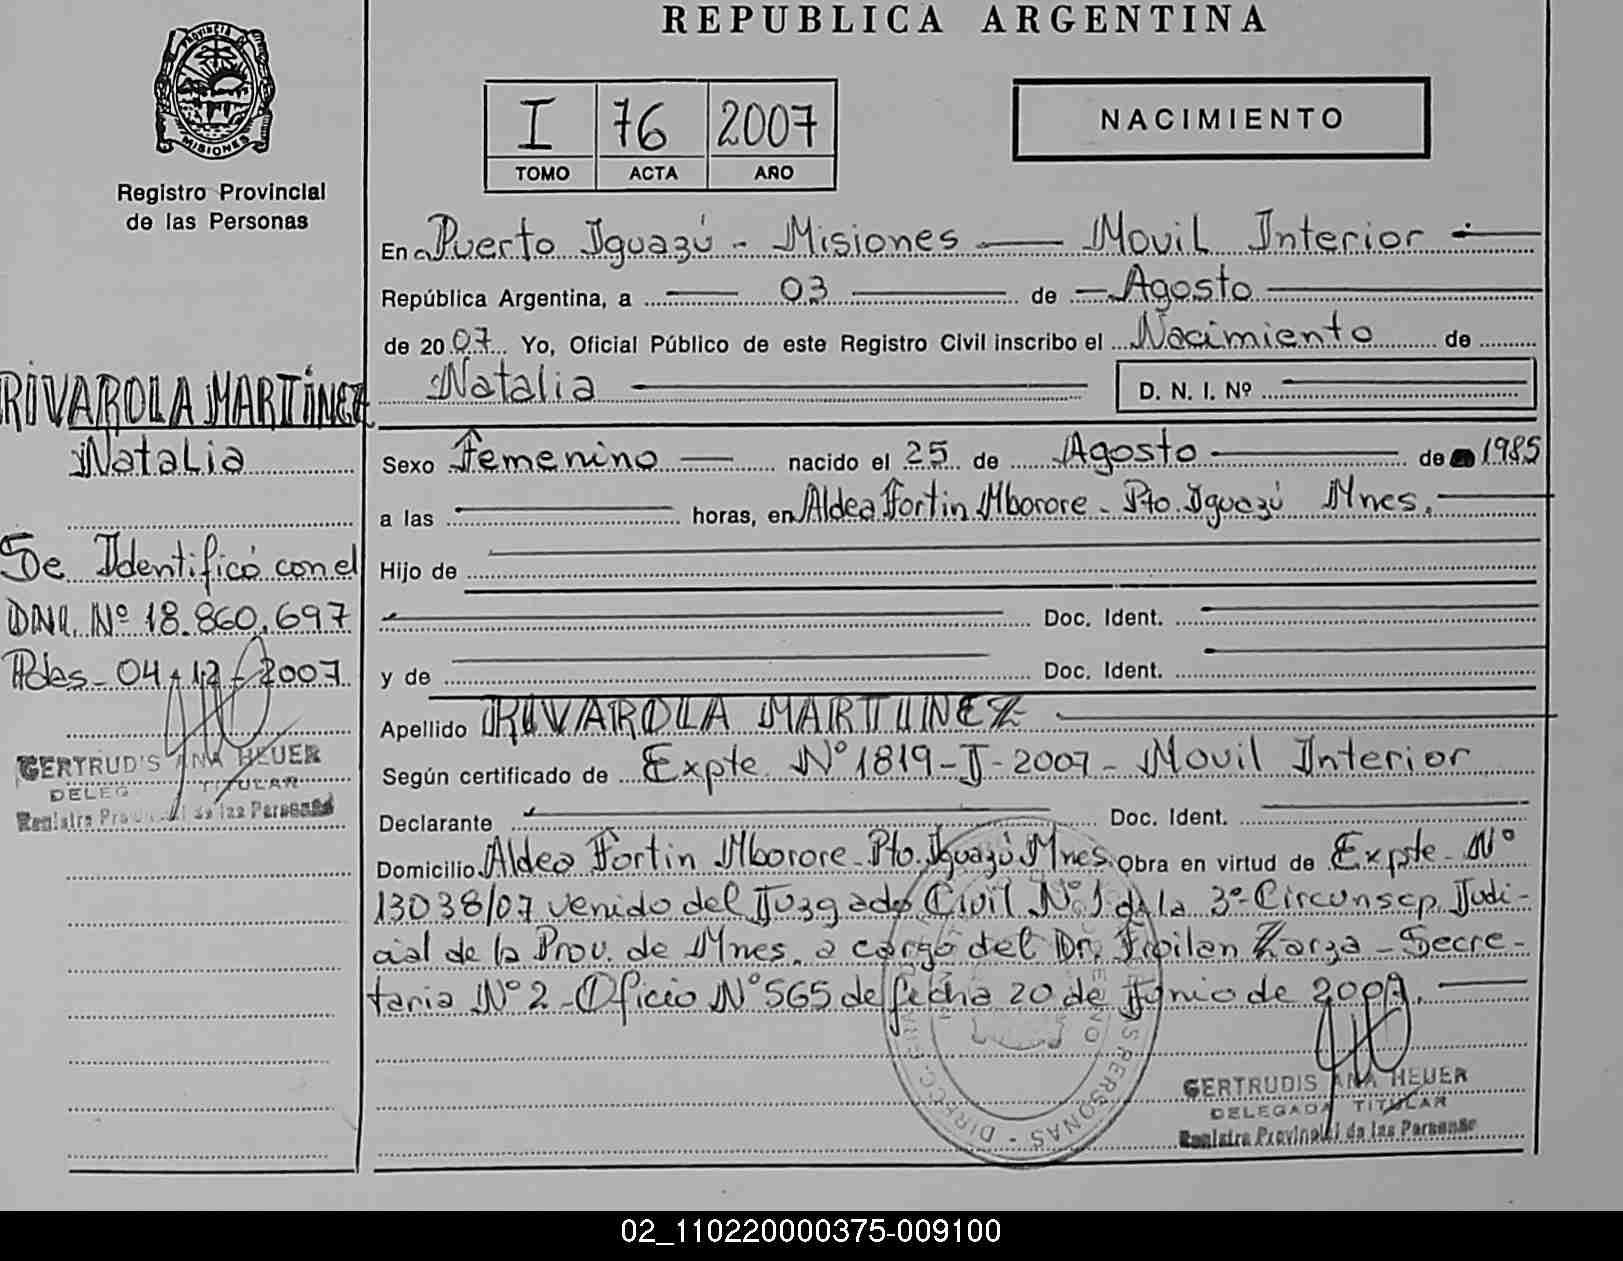 REPUBLICA ARGENTINA
PROVINCIA DE
MISIONES
Registro Provincial
de las Personas
I 76 2007
TOMO ACTA AÑO
NACIMIENTO
En Puerto Iguazú - Misiones — Movil Interior —
República Argentina, a — 03 — de — Agosto —
de 2007 Yo, Oficial Público de este Registro Civil inscribo el Nacimiento de
Natalia — D. N. I. Nº —
RIVAROLA MARTÍNEZ
Natalia
Sexo Femenino — nacido el 25 de Agosto — de 1985
a las — horas, en Aldea Fortin Mborore - Pto. Iguazú Mnes. —
Hijo de —
— Doc. Ident. —
y de — Doc. Ident. —
Se Identificó con el
DNI. Nº 18.860.697
Pdas - 04 - 12 - 2007.
GERTRUDIS ANA HEUER
TITULAR
Registro de las Personas
Apellido RIVAROLA MARTINEZ —
Según certificado de Expte Nº 1819-I-2007 - Movil Interior
Declarante — Doc. Ident. —
Domicilio Aldea Fortin Mborore - Pto. Iguazú Mnes. Obra en virtud de Expte - Nº
13038/07 venido del Juzgado Civil Nº 1 de la 3º Circunscp. Judi-
cial de la Prov. de Mnes. a cargo del Dr. Froilan Zarza - Secre-
taria Nº 2 - Oficio Nº 565 de fecha 20 de Junio de 2007. —
PERSONAS - DIREC.
GERTRUDIS ANA HEUER
DELEGADA TITULAR
Registro Provincial de las Personas
02_110220000375-009100